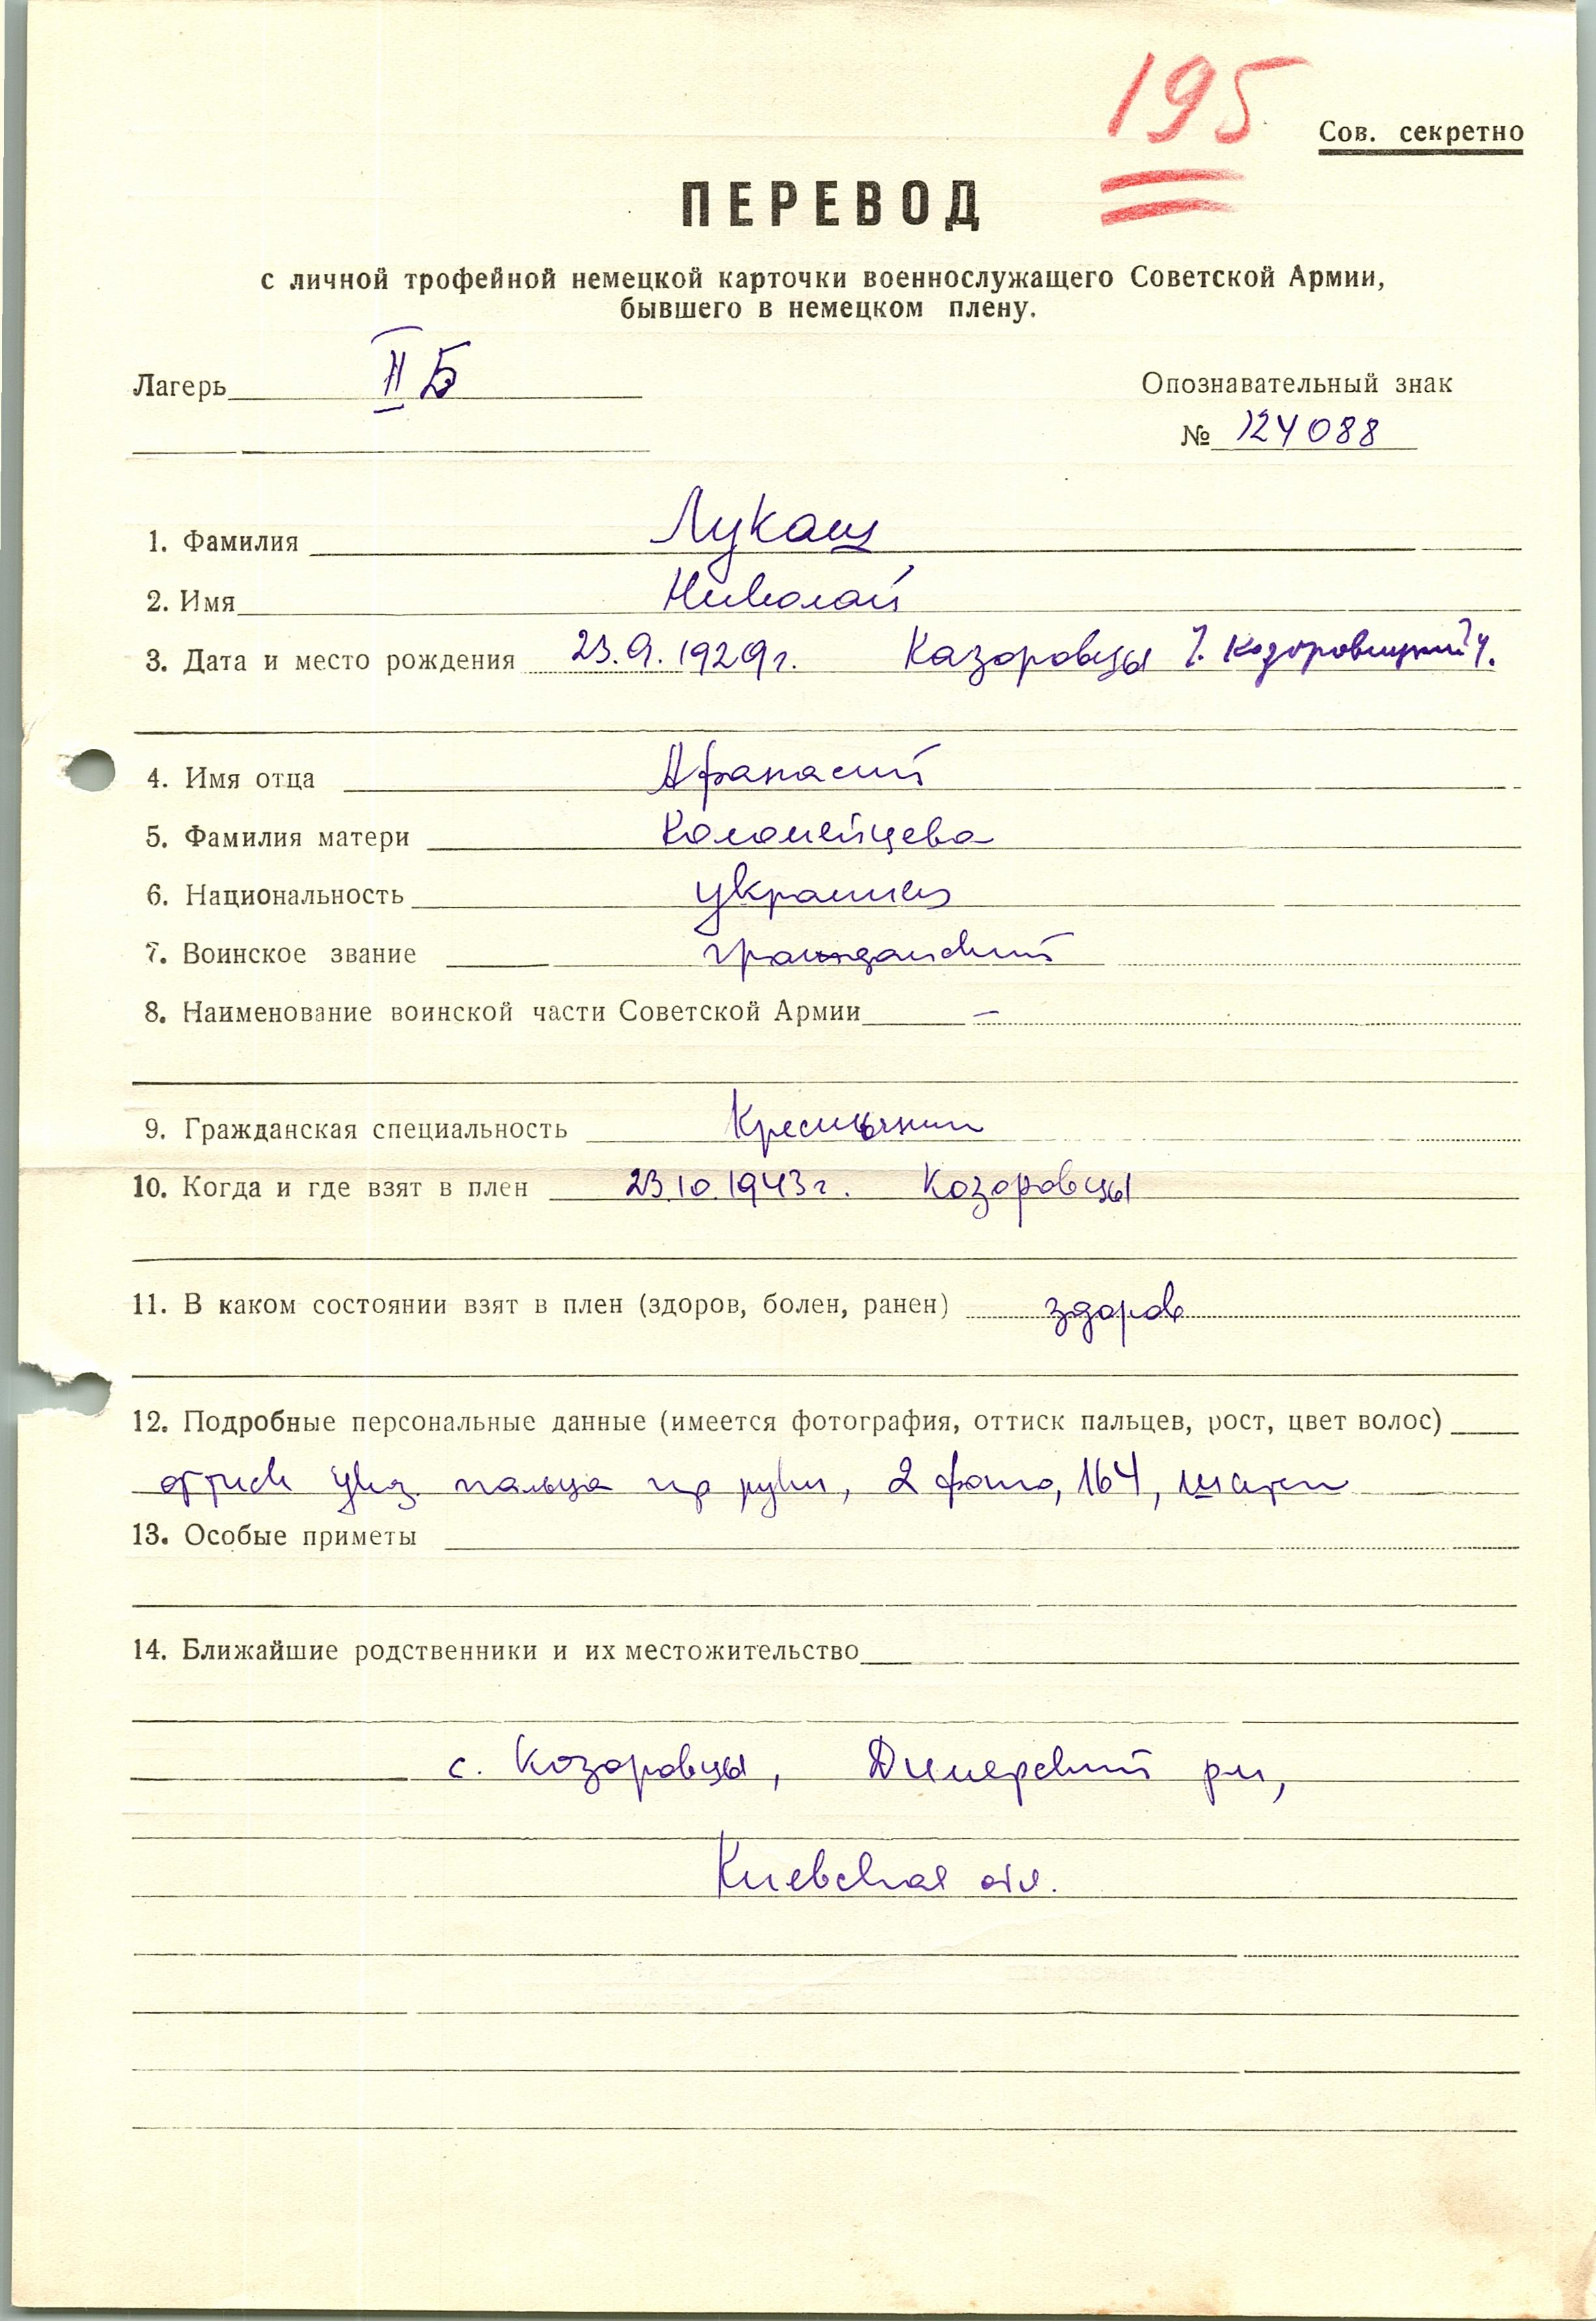 195
Сов. секретно
ПЕРЕВОД
с личной трофейной немецкой карточки военнослужащего Советской Армии,
бывшего в немецком плену.
Лагерь II Б
Опознавательный знак
№ 124088
1. Фамилия Лукаш
2. Имя Николай
3. Дата и место рождения 23.9.1929г. Казоровцы
4. Имя отца Афанасий
5. Фамилия матери Коломейцева
6. Национальность украинец
7. Воинское звание гражданский
8. Наименование воинской части Советской Армии –
9. Гражданская специальность Крестьянин
10. Когда и где взят в плен 23.10.1943г. Козоровцы
11. В каком состоянии взят в плен (здоров, болен, ранен) здоров
12. Подробные персональные данные (имеется фотография, оттиск пальцев, рост, цвет волос)
оттиск указ. пальца пр руки, 2 фото, 164, шатен
13. Особые приметы
14. Ближайшие родственники и их местожительство
с. Козоровцы, Димерский рн,
Киевская обл.